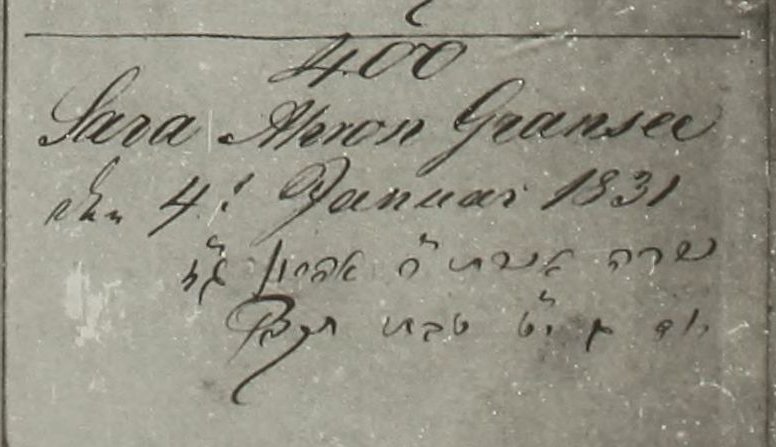 400
Sara Aheron Gransee
den 4t Januar 1831
שרה אשת ר״ אהרון
יום ג י״ט טבת תקצא